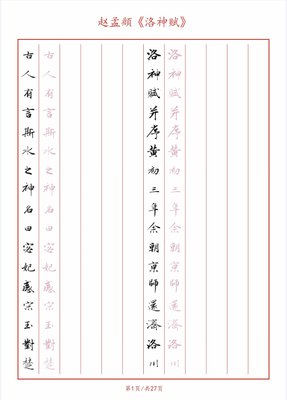 赵孟頫《洛神赋》
洛神賦并序黄初三年余朝京師還濟洛川
洛神賦并序黄初三年余朝京師還濟洛川
古人有言斯水之神名曰宓妃感宋玉對楚
古人有言斯水之神名曰宓妃感宋玉對楚
第1页/共27页